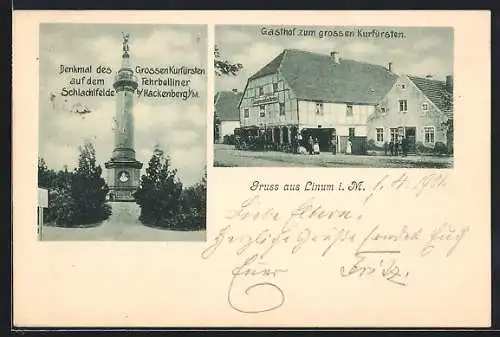 Denkmal des Grossen Kurfürsten
auf dem Fehrbelliner
Schlachtfelde b/ Hackenberg i/M.
Gasthof zum grossen Kurfürsten.
Gruss aus Linum i. M.
Liebe Eltern!
Herzliche Grüße sendet Euch
Euer Fritz